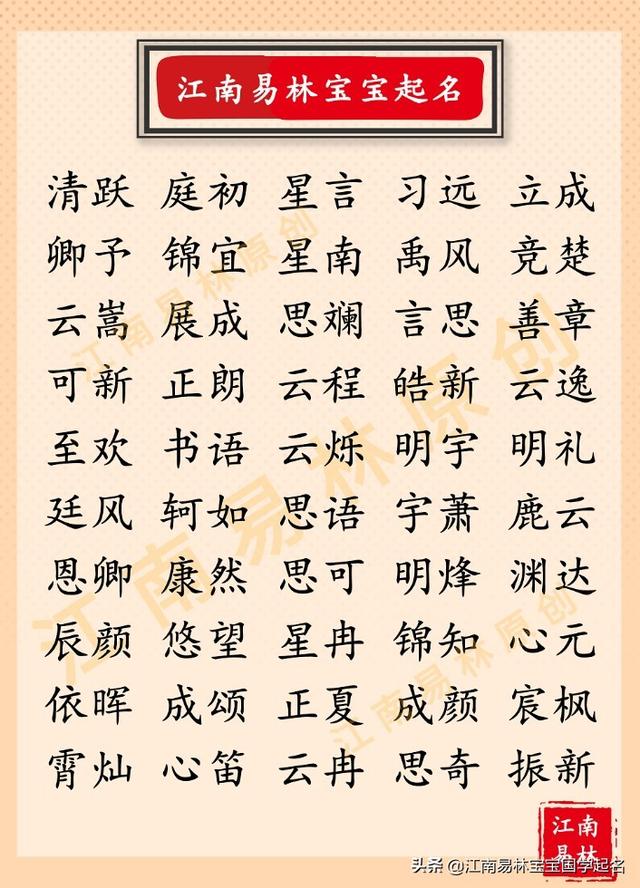 江南易林宝宝起名
清跃 庭初 星言 习远 立成
卿予 锦宜 星南 禹风 竞楚
云嵩 展成 思斓 言思 善章
可新 正朗 云程 皓新 云逸
至欢 书语 云烁 明宇 明礼
廷风 轲如 思语 宇萧 鹿云
恩卿 康然 思可 明烽 渊达
辰颜 悠望 星冉 锦知 心元
依晖 成颂 正夏 成颜 宸枫
霄灿 心笛 云冉 思奇 振新
江南易林原创
江南易林原创
江南易林原创
江南
易林
头条 @江南易林宝宝国学起名